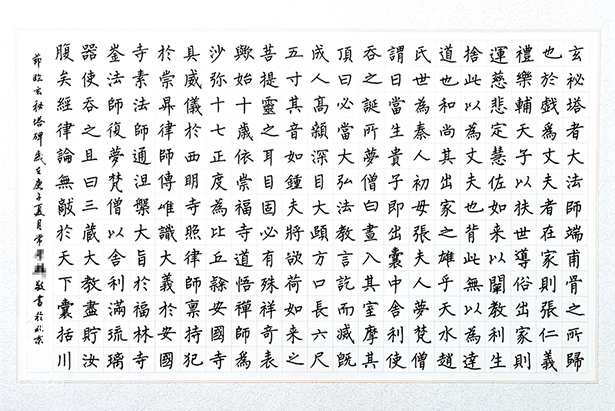 玄祕塔者大法師端甫骨之所歸
也於戲為丈夫者在家則張仁義
禮樂輔天子以扶世導俗出家則
運慈悲定慧佐如来以闡教利生
捨此以為丈夫也背此無以為達
道也和尚其出家之雄乎天水趙
氏世為秦人初母張夫人夢梵僧
謂曰當生貴子即出囊中舍利使
吞之誕所夢僧白晝入其室摩其
頂曰必當大弘法教言訖而滅既
成人高顙深目大頤方口長六尺
五寸其音如鍾夫將欲荷如来之
菩提靈之耳目固必有殊祥奇表
歟始十歲依崇福寺道悟禪師為
沙弥十七正度為比丘隸安國寺
具威儀於西明寺照律師稟持犯
於崇昇律師傳唯識大義於安國
寺素法師通涅槃大旨於福林寺
崟法師復夢梵僧以舍利滿琉璃
器使吞之且曰三藏大教盡貯汝
腹矣經律論無敵於天下囊括川
節臨玄秘塔碑歲在庚子夏月常敬書於北京